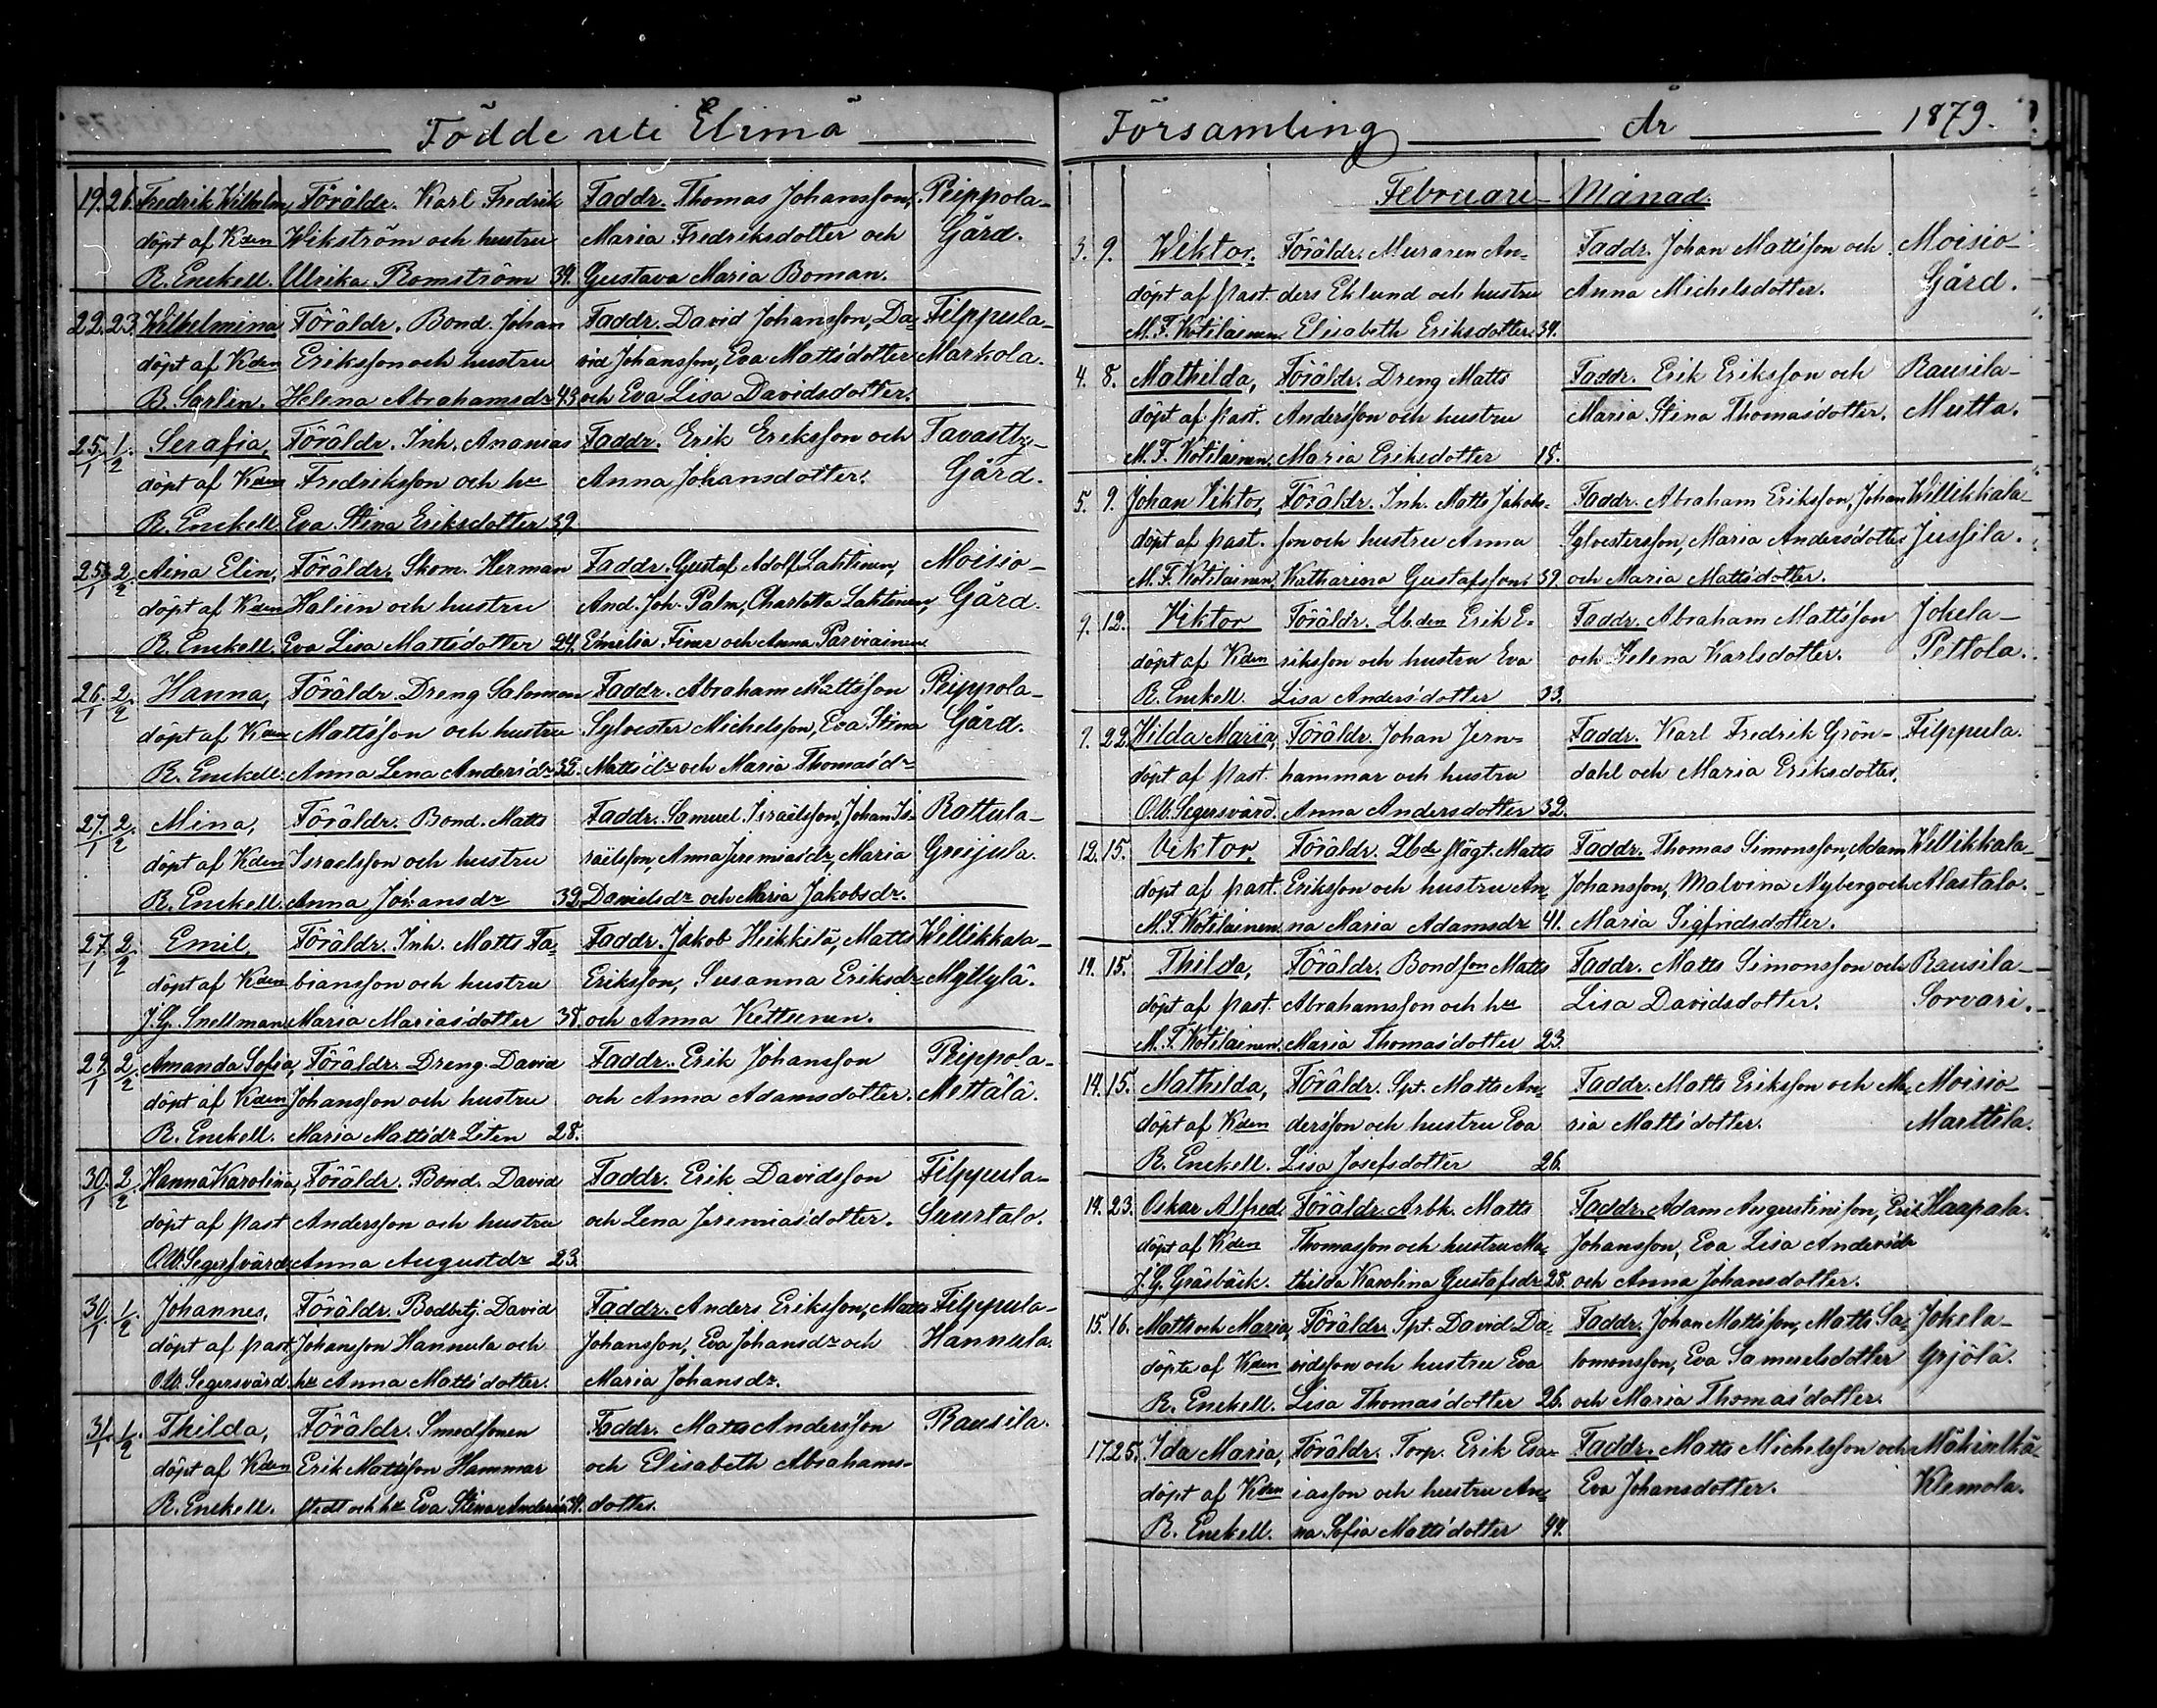 Födde uti Elimä
19. 26. Fredrik Wilhelm, Föräldr. Karl Fredrik Faddr. Thomas Johansson, Peippola-
döpt af Kden Wikström och hustru Maria Fredriksdotter och Gård.
R. Enckell. Ulrika Romström 39. Gustava Maria Boman.
22. 23. Wilhelmina Föräldr. Bond. Johan Faddr. David Johansson, Da- Filppula-
döpt af Kden Eriksson och hustru vid Johansson, Eva Mattsdotter Markola.
B. Sarlin. Helena Abrahamsdr 43 och Eva Lisa Davidsdotter.
25/1 1/2 Serafia, Föräldr. Inh. Ananias Faddr. Erik Eriksson och Tavastby-
döpt af Kden Fredriksson och hu Anna Johansdotter. Gård.
R. Enckell. Eva Stina Eriksdotter 39
25/1 2/2 Aina Elin, Föräldr. Skom. Herman Faddr. Gustaf Adolf Lahtinen, Moisio-
döpt af Kden Haliin och hustru And. Joh. Palm, Charlotta Lahtinen, Gård.
R. Enckell. Eva Lisa Mattsdotter 24. Emilia Finer och Anna Parviainen
26/1 2/2 Hanna, Föräldr. Dreng Salomon Faddr. Abraham Mattsson Peippola-
döpt af Kden Mattsson och hustru Sylvester Michelsson, Eva Stina Gård.
R. Enckell. Anna Lena Andersdr 32. Mattsdr och Maria Thomasdr
27/1 2/2 Mina, Föräldr. Bond. Matts Faddr. Samuel Israëlsson, Johan Is- Rattula-
döpt af Kden Israelsson och hustru raëlsson, Anna Jeremiasdr, Maria Greijula.
R. Enckell. Anna Johansdr 39. Davidsdr och Maria Jakobsdr.
27/1 2/2 Emil. Föräldr. Inh. Matts Fa- Faddr. Jakob Heikkilä, Matts Willikkala-
döpt af Kden biansson och hustru Eriksson, Susanna Eriksdr Myllylä.
J. G. Snellman Maria Mariasdotter 38. och Anna Kettunen.
29/1 2/2 Amanda Sofia, Föräldr. Dreng. David Faddr. Erik Johansson Peippola-
döpt af Kden Johansson och hustru och Anna Adamsdotter. Mettälä.
R. Enckell. Maria Mattsdr Liten 28.
30/1 2/2 Hanna Karolina, Föräldr. Bond. David Faddr. Erik Davidsson Filppula-
döpt af past Andersson och hustru och Lena Jeremiasdotter. Suurtalo.
O.W. Segersvärd Anna Augustdr 23.
30/1 1/2 Johannes, Föräldr. Bodbetj. David Faddr. Anders Eriksson, Matts Filppula-
döpt af past Johansson Hannula och Johansson, Eva Johansdr och Hannula.
O.W. Segersvärd. hu Anna Mattsdotter. Maria Johansdr.
31/1 1/2 Thilda, Föräldr. Smedsonen Faddr. Matts Andersson Rausila.
döpt af Kden Erik Mattsson Hammar och Elisabeth Abrahams-
R. Enckell. stedt och hu Eva Stina dotter.
Församling År 1879.
Februari Månad.
3. 9. Wiktor. Föräldr. Muraren An- Faddr. Johan Mattsson och Moisio
döpt af past. ders Eklund och hustru Anna Michelsdotter. Gård.
M. F. Kotilainen. Elisabeth Eriksdotter 39.
4. 8. Mathilda, Föräldr. Dreng Matts Faddr. Erik Eriksson och Rausila-
döpt af past. Andersson och hustru Maria Stina Thomasdotter. Mutta.
M. F. Kotilainen. Maria Eriksdotter 18.
5. 9. Johan Viktor, Föräldr. Inh. Matts Jakobs- Faddr. Abraham Eriksson, Johan Willikkala
döpt af past. son och hustru Anna Sylvestersson, Maria Andersdotter Jussila.
M. F. Kotilainen. Katharina Gustafsson. 39. och Maria Mattsdotter.
9. 12. Viktor Föräldr. Lb.den Erik E- Faddr. Abraham Mattsson Jokela-
döpt af Kden riksson och hustru Eva och Helena Karlsdotter. Pettola.
R. Enckell. Lisa Andersdotter 33.
9. 22. Hilda Maria, Föräldr. Johan Jern- Faddr. Karl Fredrik Grön- Filppula.
döpt af past. hammar och hustru dahl och Maria Eriksdotter.
O.W. Segersvärd. Anna Andersdotter 32.
12. 15. Viktor, Föräldr. Lbde flägt. Matts Faddr. Thomas Simonsson, Adam Willikkala-
döpt af past. Eriksson och hustru An- Johansson, Malvina Nyberg och Alastalo.
M. F. Kotilainen na Maria Adamsdr 41. Maria Sigfridsdotter.
14. 15. Thilda, Föräldr. Bondson Matts Faddr. Matts Simonsson och Rausila-
döpt af past. Abrahamsson och hu Lisa Davidsdotter. Sorvari.
M. F. Kotilainen. Maria Thomasdotter 23.
14. 15. Mathilda, Föräldr. Spt. Matts An- Faddr. Matts Eriksson och Ma- Moisio
döpt af Kden dersson och hustru Eva ria Mattsdotter. Marttila.
R. Enckell. Lisa Josefsdotter 26.
14. 23. Oskar Alfred. Föräldr. Arbk. Matts Faddr. Adam Augustinsson, Erik Haapala.
döpt af Kden Thomasson och hustru Ma- Johansson, Eva Lisa Andersdr
J. G. Gräsbäck. thilda Karolina Gustafsdr 28. och Anna Johansdotter.
15. 16. Matts och Maria, Föräldr. Spt. David Da- Faddr. Johan Mattsson, Matts Sa- Jokela-
döpte af Kden vidsson och hustru Eva lomonsson, Eva Samuelsdotter Yrjölä.
R. Enckell. Lisa Thomasdotter 26. och Maria Thomasdotter.
17. 25. Ida Maria, Föräldr. Torp. Erik Esa- Faddr. Matts Michelsson och Mäkinlkä-
döpt af Kden iasson och hustru An- Eva Johansdotter. Klemola.
R. Enckell. na Sofia Mattsdotter 44.